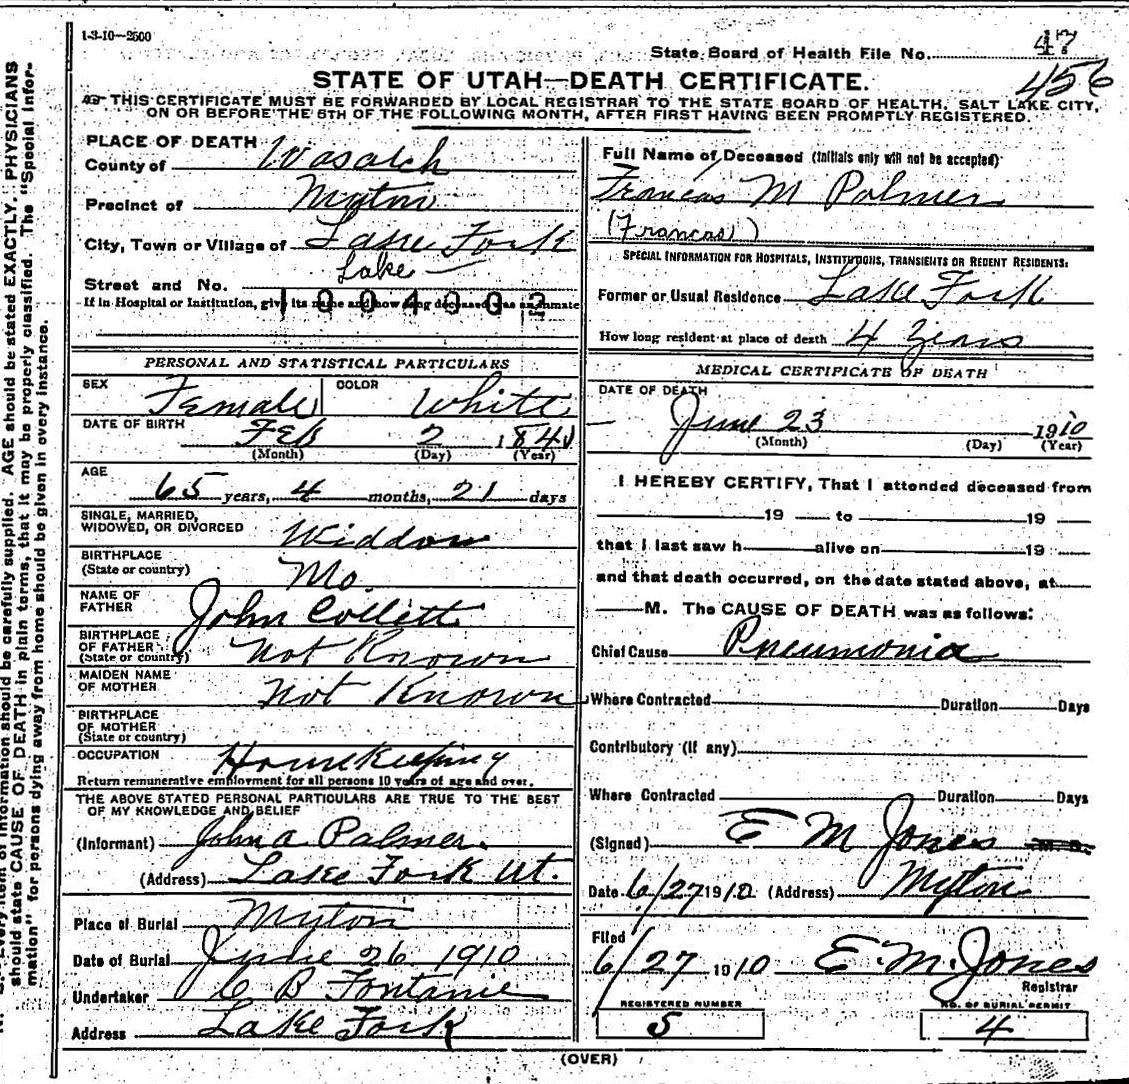 1-3-10—2500
State Board of Health File No. 47
456
STATE OF UTAH—DEATH CERTIFICATE.
THIS CERTIFICATE MUST BE FORWARDED BY LOCAL REGISTRAR TO THE STATE BOARD OF HEALTH, SALT LAKE CITY,
ON OR BEFORE THE 5TH OF THE FOLLOWING MONTH, AFTER FIRST HAVING BEEN PROMPTLY REGISTERED.
PLACE OF DEATH
County of Wasatch
Precinct of Myton
City, Town or Village of Lake Fork
Lake
Street and No.
If in Hospital or Institution, give its name and how long deceased was an inmate
1004002
PERSONAL AND STATISTICAL PARTICULARS
SEX Female COLOR White
DATE OF BIRTH Feb 2 184
(Month) (Day) (Year)
AGE 65 years, 4 months, 21 days
SINGLE, MARRIED,
WIDOWED, OR DIVORCED Widdow
BIRTHPLACE
(State or country) Mo.
NAME OF
FATHER John Collett
BIRTHPLACE
OF FATHER
(State or country) Not Known
MAIDEN NAME
OF MOTHER Not Known
BIRTHPLACE
OF MOTHER
(State or country)
OCCUPATION Housekeeping
Return remunerative employment for all persons 10 years of age and over.
THE ABOVE STATED PERSONAL PARTICULARS ARE TRUE TO THE BEST
OF MY KNOWLEDGE AND BELIEF
(Informant) John A Palmer.
(Address) Lake Fork Ut.
Place of Burial Myton
Date of Burial June 26 1910
Undertaker C B Fontanie
Address Lake Fork
Full Name of Deceased (Initials only will not be accepted)
Francas M Palmer
(Francas)
SPECIAL INFORMATION FOR HOSPITALS, INSTITUTIONS, TRANSIENTS OR RECENT RESIDENTS:
Former or Usual Residence Lake Fork
How long resident at place of death 4 Years
MEDICAL CERTIFICATE OF DEATH
DATE OF DEATH
June 23 1910
(Month) (Day) (Year)
I HEREBY CERTIFY, That I attended deceased from
19 to 19
that I last saw h alive on 19
and that death occurred, on the date stated above, at
M. The CAUSE OF DEATH was as follows:
Chief Cause Pneumonia
Where Contracted Duration Days
Contributory (if any)
Where Contracted Duration Days
(Signed) E M Jones M. D.
Date 6/27 1910 (Address) Myton
Filed
6/27 1910 E. M. Jones
Registrar
REGISTERED NUMBER
5
NO. OF BURIAL PERMIT
4
(OVER)
Every item of information should be carefully supplied. AGE should be stated EXACTLY. PHYSICIANS
should state CAUSE OF DEATH in plain terms, that it may be properly classified. The "Special Infor-
mation" for persons dying away from home should be given in every instance.